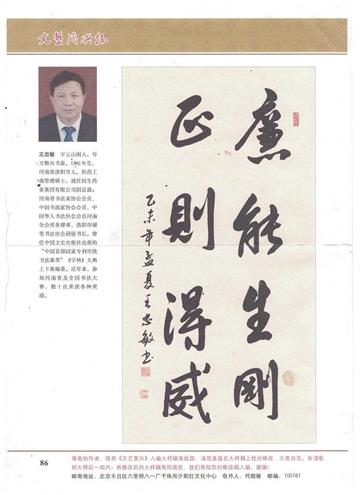 王忠敏 字云山闲人,号
书斋,1961年生,
河南省洛阳市人,医药工
商管理硕士,现任民生药
业集团有限公司副总裁;
河南省书法家协会会员、
中国书画家协会会员、
中国华人书法协会会员河南
分会常务理事、洛阳市硬
笔书法协会副秘书长。曾
任中国文史出版社出版的
“中国首部国家专利传统
书法集萃”《字林》大典
上下集编委。近年来,参
加河南省及全国书法大
赛,数十次荣获各种奖
励。
廉能生剛
正則得威
乙未年孟夏王忠敏书
86
尊敬的作者,现将《文艺复兴》入编大样稿寄给您,请您直接在大样稿上校对修改、文责自负。务请收
到大样后一周内,将修改后的大样稿寄回我处,我们将按您的修改稿入编,谢谢!
邮寄地址:北京丰台区六里桥八一厂干休所少彩红文化中心 收件人:代晓敏 邮编:100161